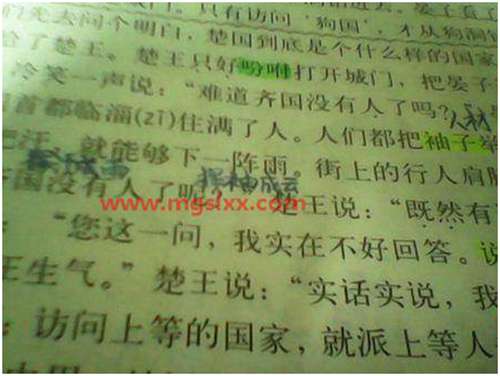 只有访问“狗国”，才从狗洞
们先去问个明白，楚国到底是个什么样的国家
给了楚王。楚王只好吩咐打开城门，把晏子
冷笑一声说：“难道齐国没有人了吗？ 人材
国首都临淄(zī)住满了人。人们都把袖子举
把汗，就能够下一阵雨。街上的行人肩
挥袖成云
齐国没有人了呢？” 楚王说：“既然有
www.mgslxx.com
：“您这一问，我实在不好回答。说
王生气。”楚王说：“实话实说，我
：访问上等的国家，就派上等人